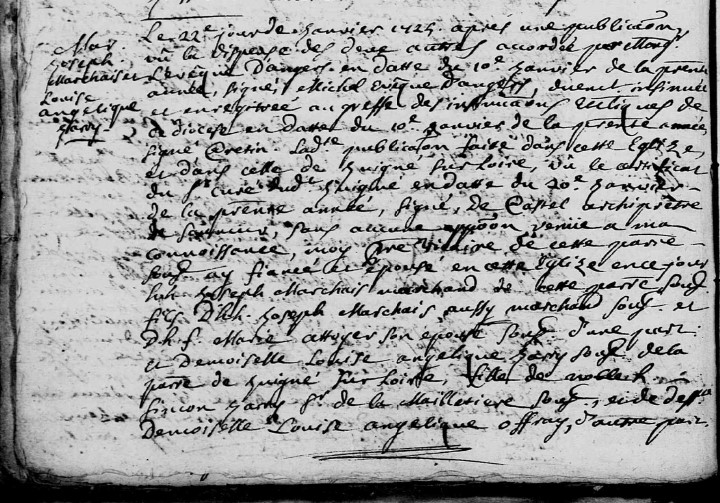 Mar
Joseph
Marchais et
Louise
angelique
harry
Le 22e jour de Janvier 1725 apres une publicaon
vû la dispense des deux autres accordée par Mons.
L'evêque D'angers en datte du 10e Janvier de la presente
année, signé, Michel Evêque D'angers, duement insinuée
et enregitrée au greffe des insinuaons Ecliques de
ce diocese en datte du 10e Janvier de la presente année,
signé ladte publicaon faite dans cette Eglize,
et dans celle de sur Loire, vû le certificat
du sr curé dudt en datte du 20e Janvier
de la presente année, signé, de Castel archiprêtre
de Saumur, sans aucune oppoon venüe a ma
connoissance, moy pre Vicaire de cette paroie
souss. ay fiancé et épousé en cette Eglize en ce jour
hh. Joseph Marchais marchand de cette parse souss.
fils D'hh. Joseph Marchais aussy marchand souss. et
D'h. f. Marie son epouse souss. d'une part
et Demoiselle Louise angelique harry souss. de la
parse de sur Loire, fille de noble h.
Simon harry sr de la souss., et de deffte
Demoiselle Louise angelique offray, d'autre part.